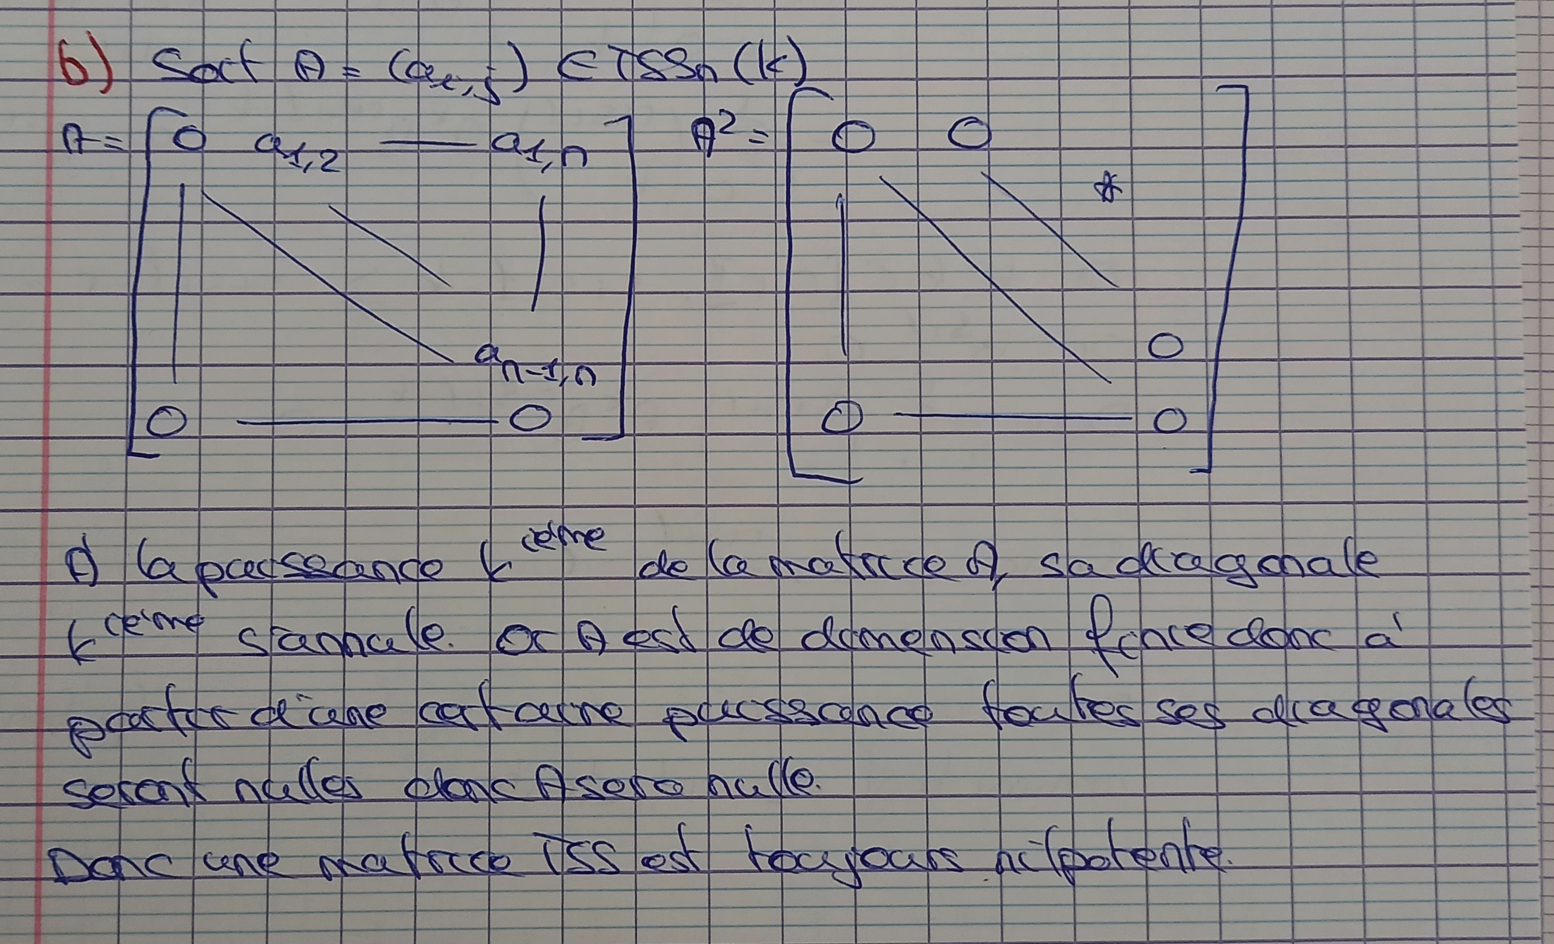 b) Soit A = (ai,j) ∈ TSSn (k)
A = [ 0 a1,2 — a1,n ] A² = [ 0 0 ]
*
an-1,n 0
0 — 0 0 — 0
A la puissance k ième de la matrice A, sa diagonale
k ième s'annule. Or A est de dimension finie donc à
partir d'une certaine puissance toutes ses diagonales
seront nulles donc A sera nulle.
Donc une matrice TSS est toujours nilpotente.